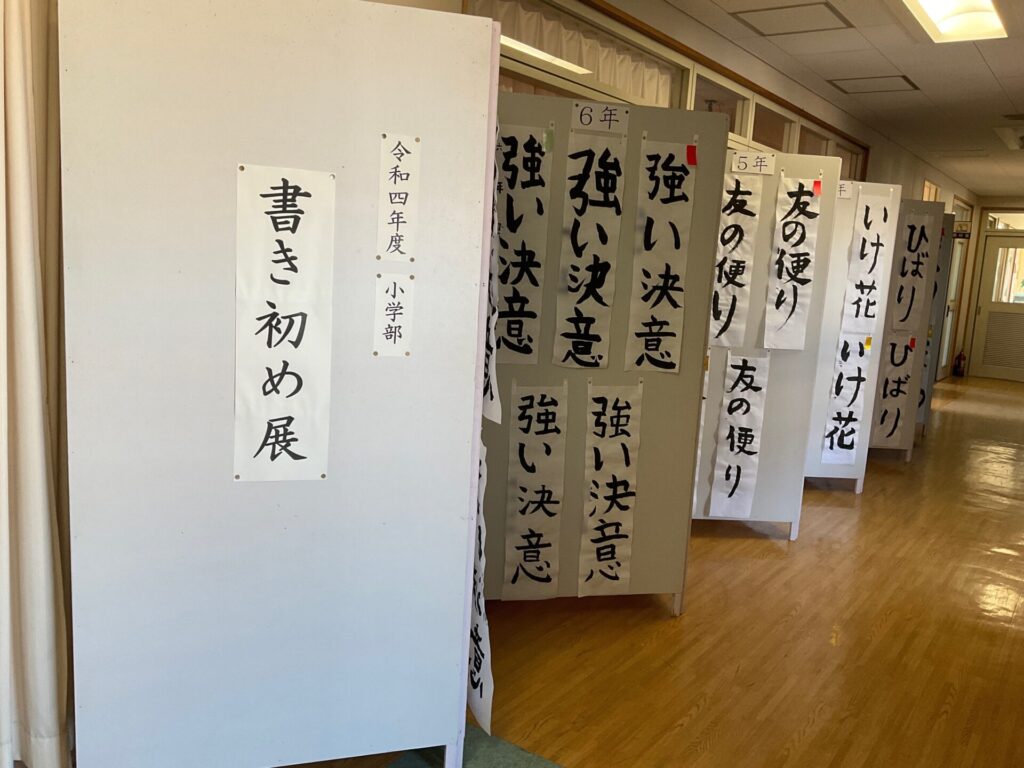 書き初め展
令和四年度
小学部
6年
強い決意
強い決意
強い決意
強い決意
強い決意
5年
友の便り
友の便り
友の便り
年
いけ花
いけ花
ひばり
ひばり